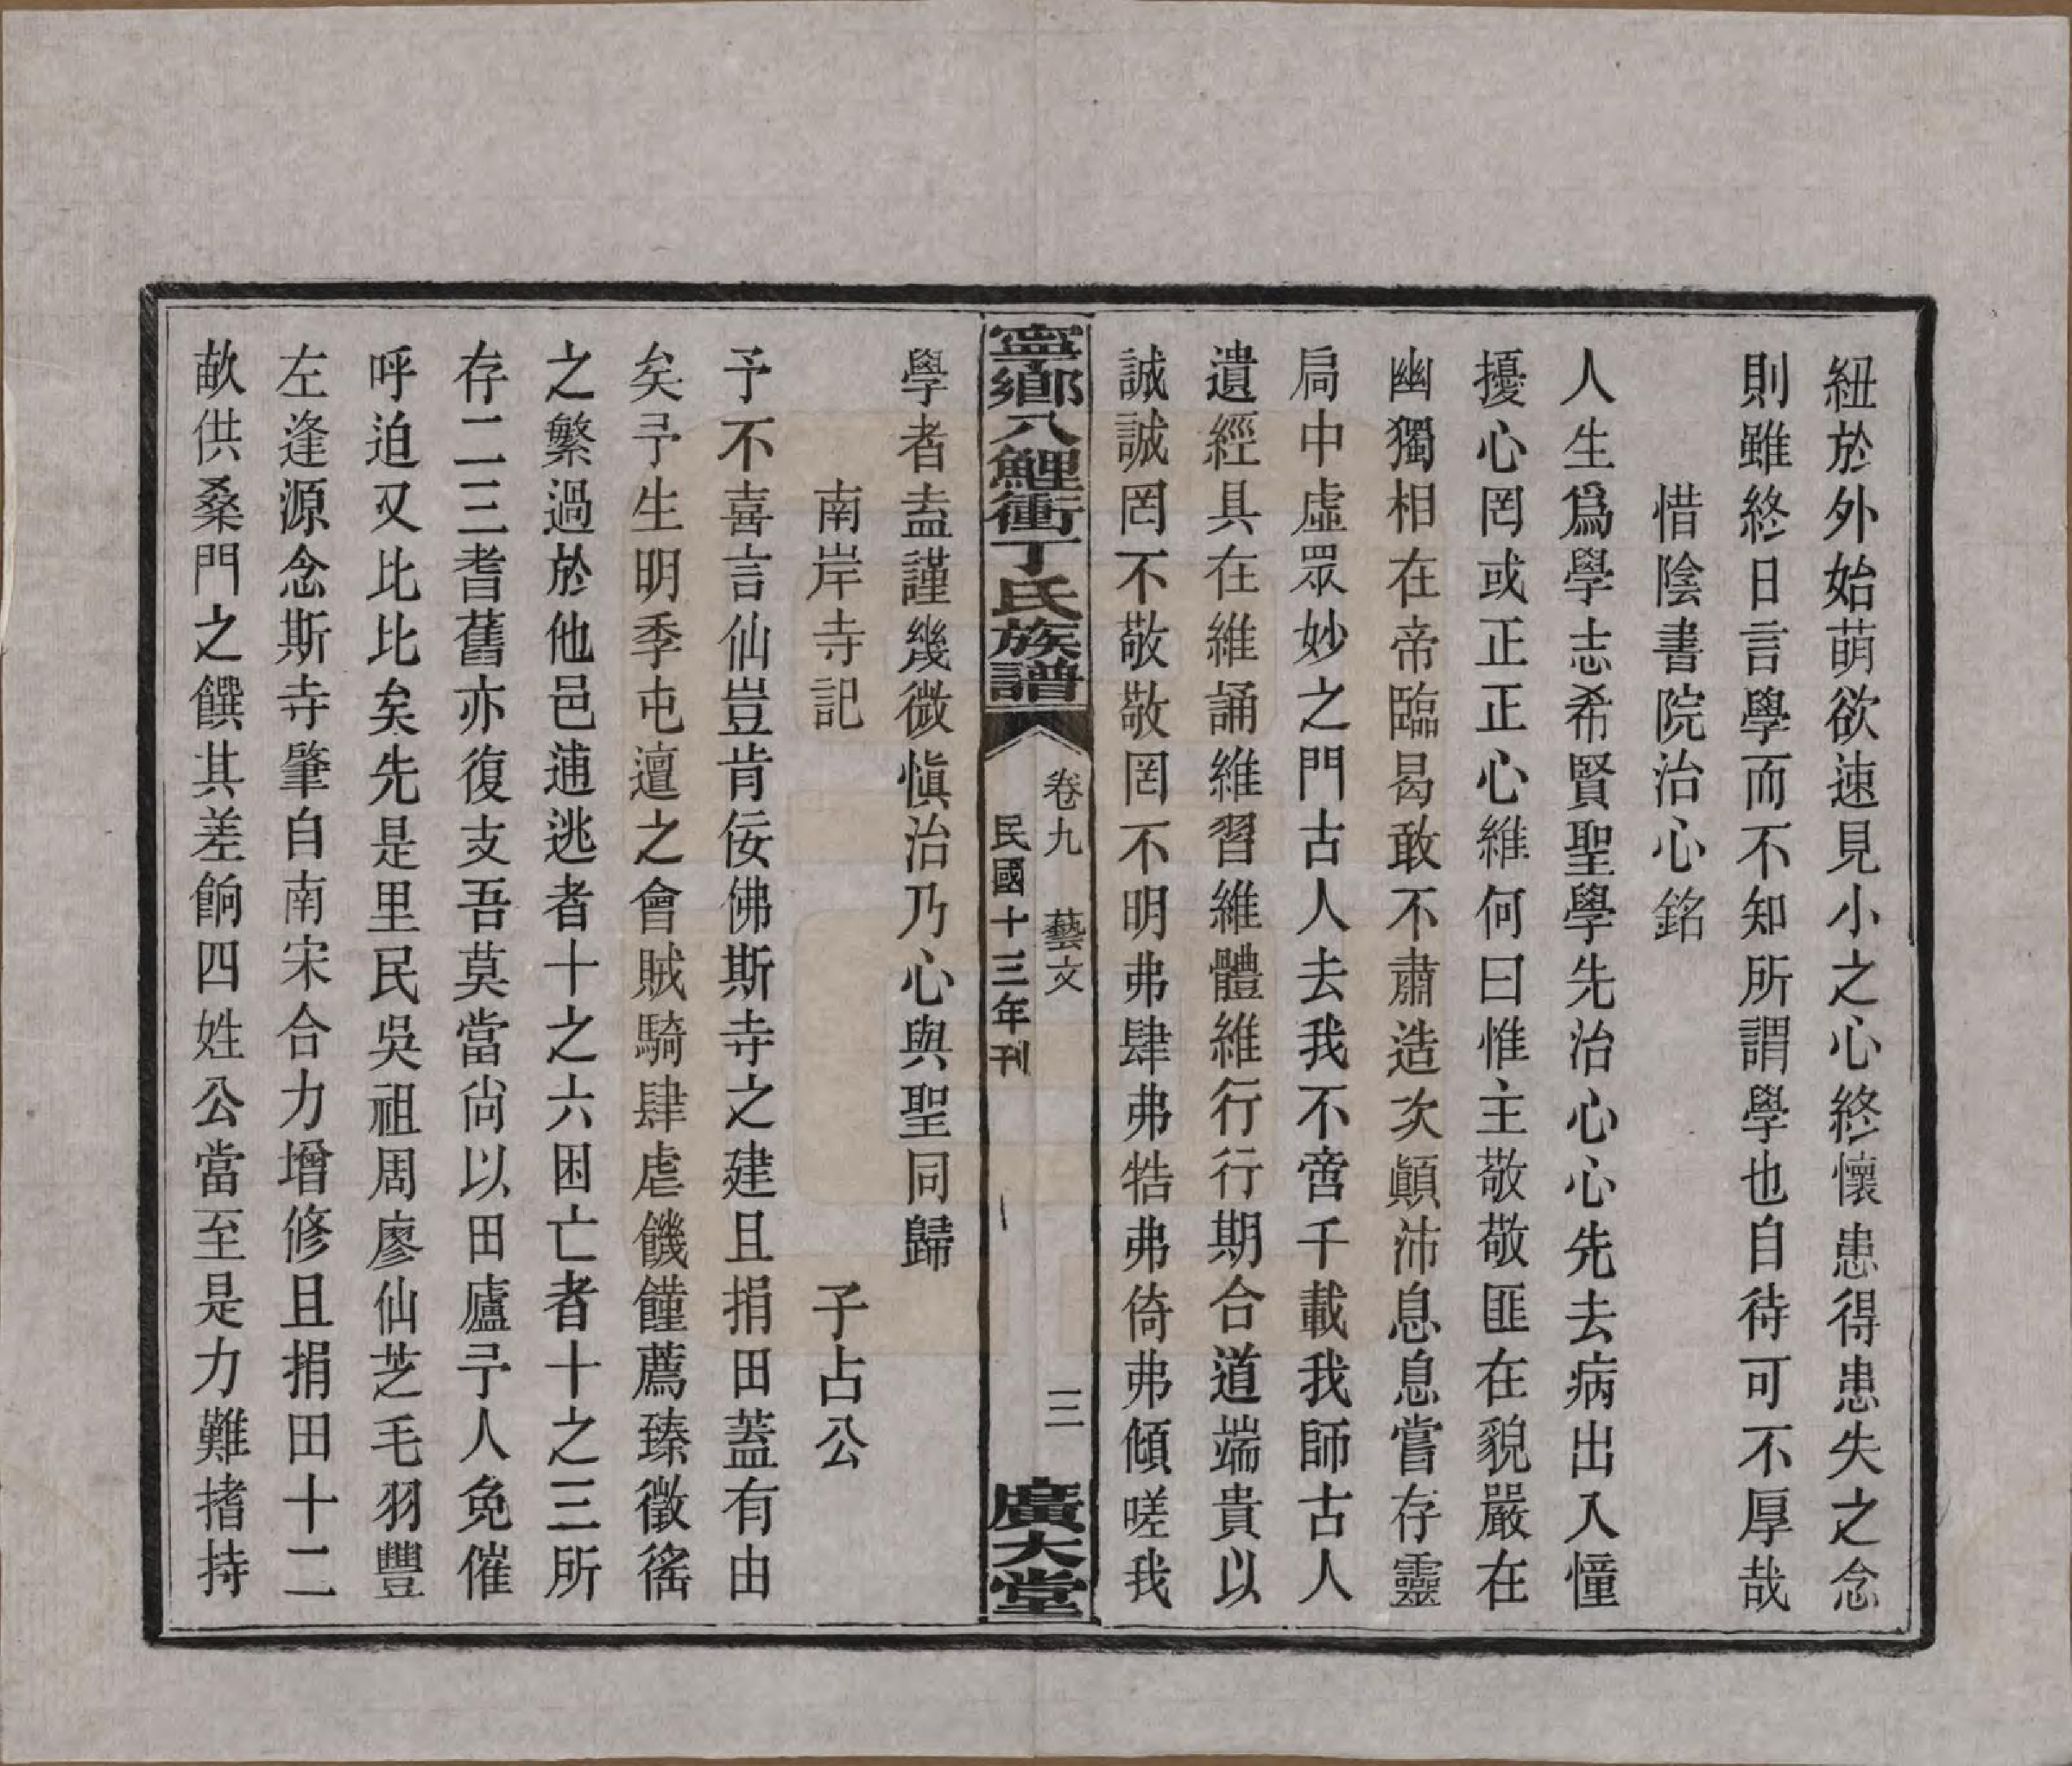 紐於外始萌欲速見小之心終懷患得患失之念
則雖終日言學而不知所謂學也自待可不厚哉
惜陰書院治心銘
人生爲學志希賢聖學先治心心先去病出入憧
擾心罔或正正心維何曰惟主敬敬匪在貌嚴在
幽獨相在帝臨曷敢不肅造次顚沛息息嘗存靈
扃中虛眾妙之門古人去我不啻千載我師古人
遺經具在維誦維習維體維行行期合道端貴以
誠誠罔不敬敬罔不明弗肆弗牿弗倚弗傾嗟我
寧鄉八鯉衝丁氏族譜
卷九 藝文 三
民國十三年刊
廣大堂
學者盍謹幾微愼治乃心與聖同歸
南岸寺記 子占公
予不喜言仙豈肯佞佛斯寺之建且捐田蓋有由
矣予生明季屯邅之會賊騎肆虐饑饉薦臻徵徭
之繁過於他邑逋逃者十之六困亡者十之三所
存二三耆舊亦復支吾莫當尙以田廬予人免催
呼迫又比比矣先是里民吳祖周廖仙芝毛羽豐
左逢源念斯寺肇自南宋合力增修且捐田十二
畝供桑門之饌其差餉四姓公當至是力難搘持